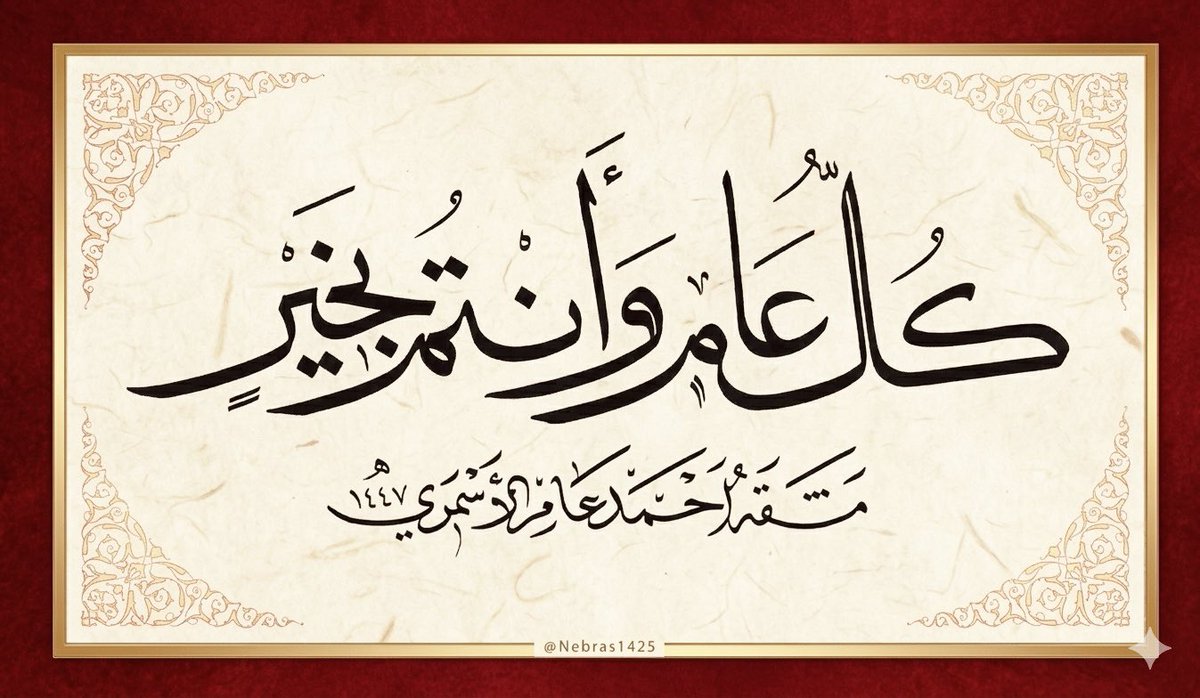 كُلُّ عَامٍ وَأَنْتُمْ بِخَيْرٍ
مَشَقَهُ أَحْمَد عَامِر الأَسْمَرِي ١٤٤٧هـ
@Nebras1425